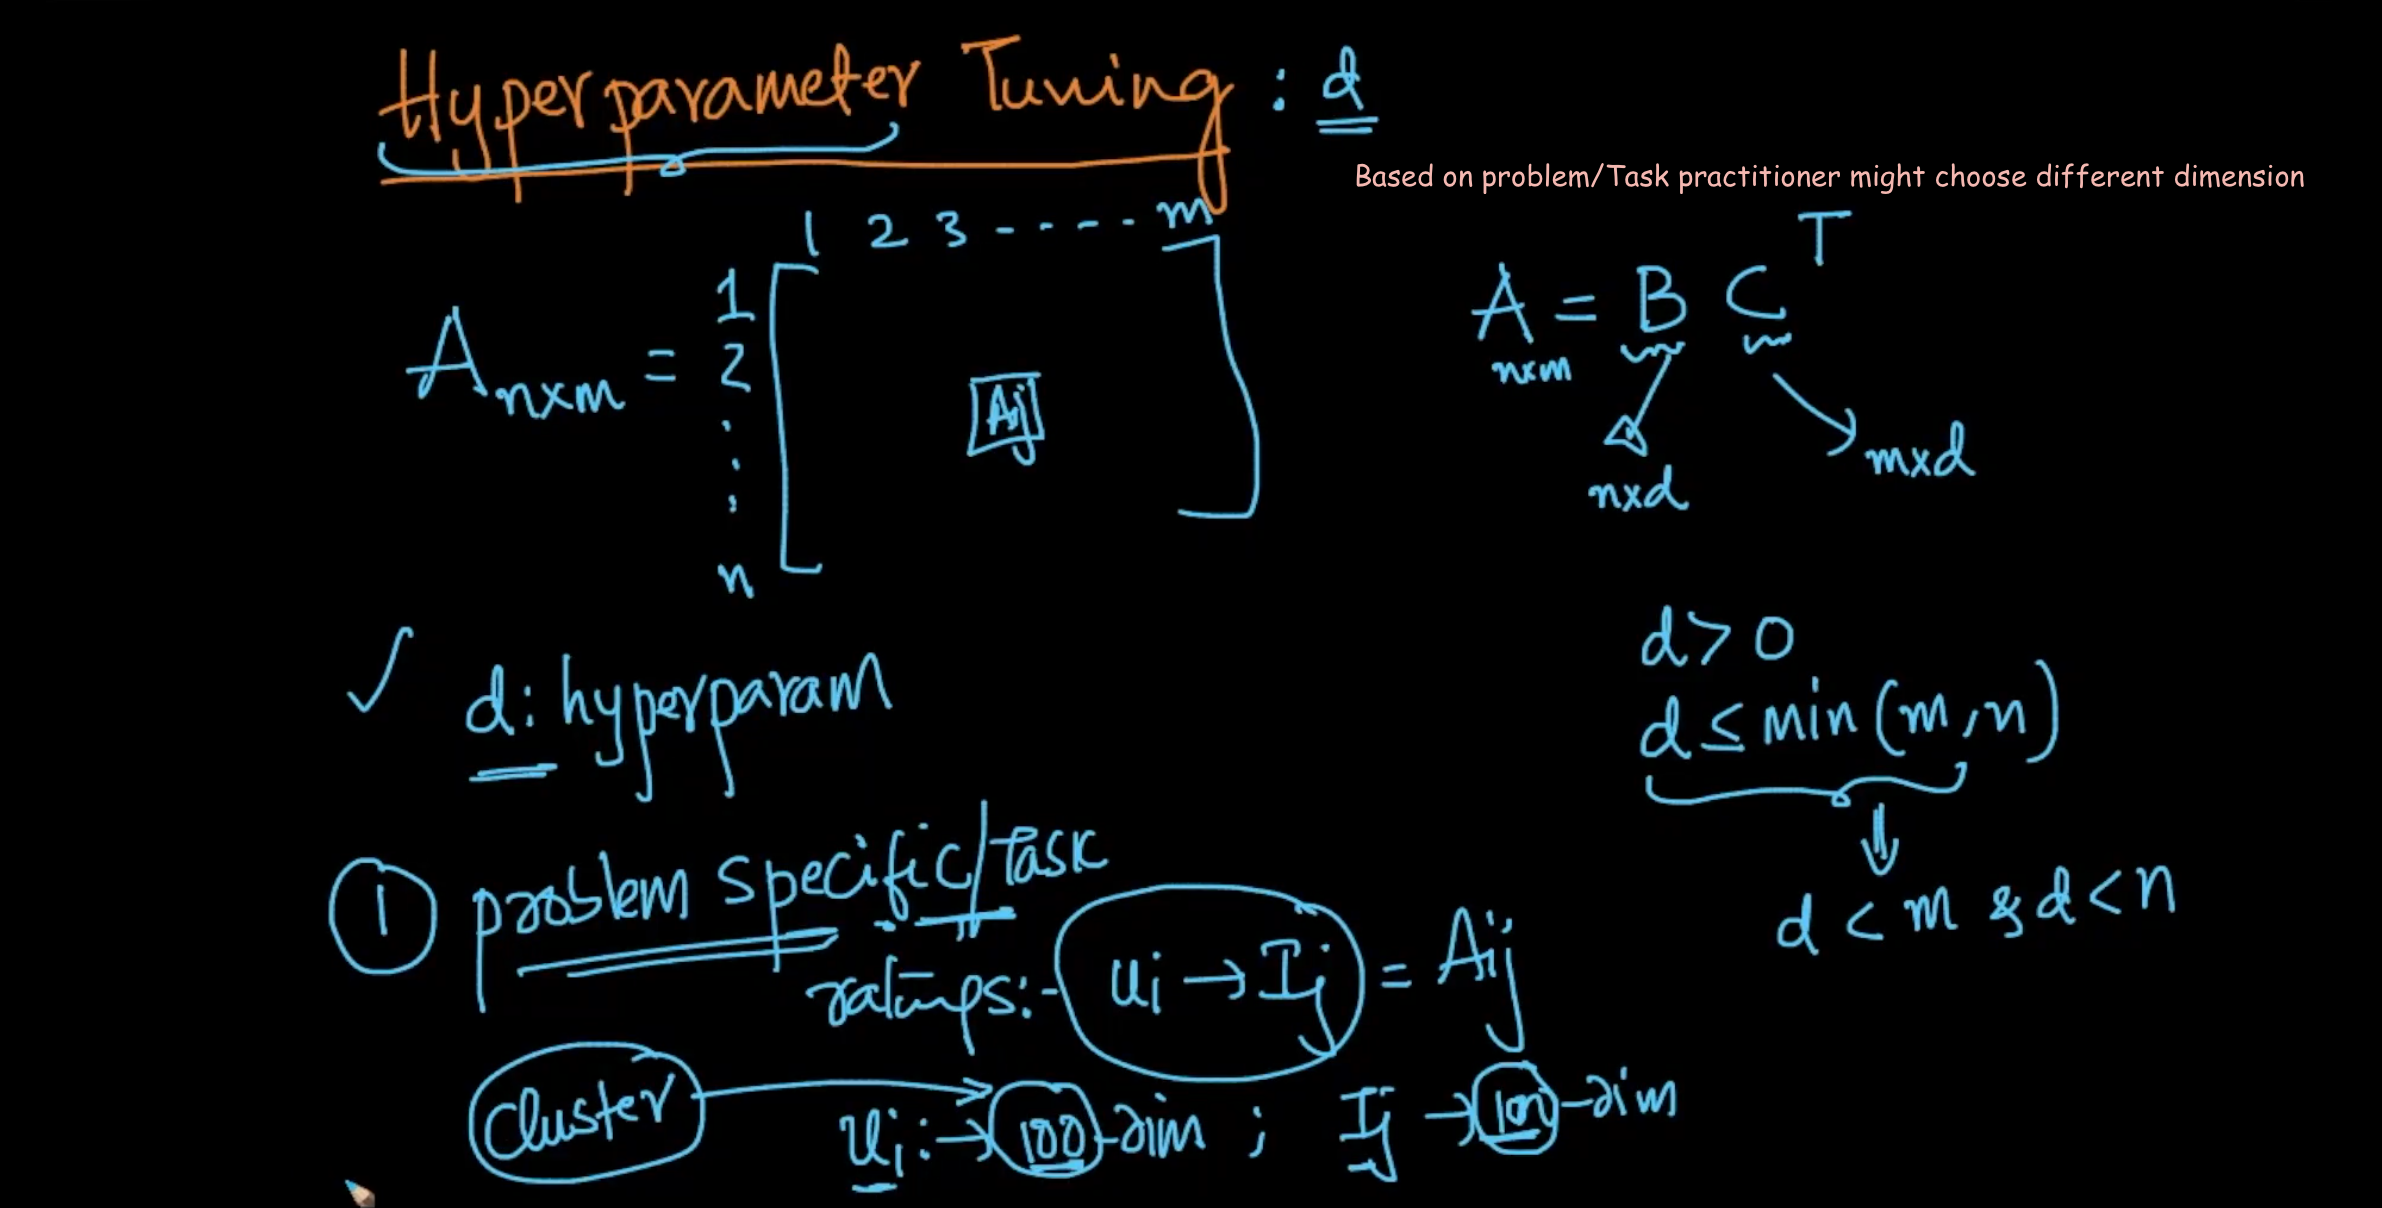 Hyperparameter Tuning : d
Based on problem/Task practitioner might choose different dimension
1 2 3 ----- m
A n×m = 1 2 : : n [ Aij ]
A = B C^T
n×m
n×d
m×d
d > 0
d: hyperparam
d ≤ min(m,n)
d < m & d < n
1 problem specific/task
ratings:- ui → Ij = Aij
cluster
ui: → 100-dim ; Ij → 100-dim